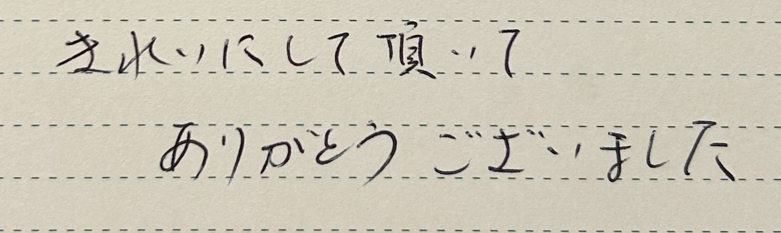 きれいにして頂いて
ありがとうございました